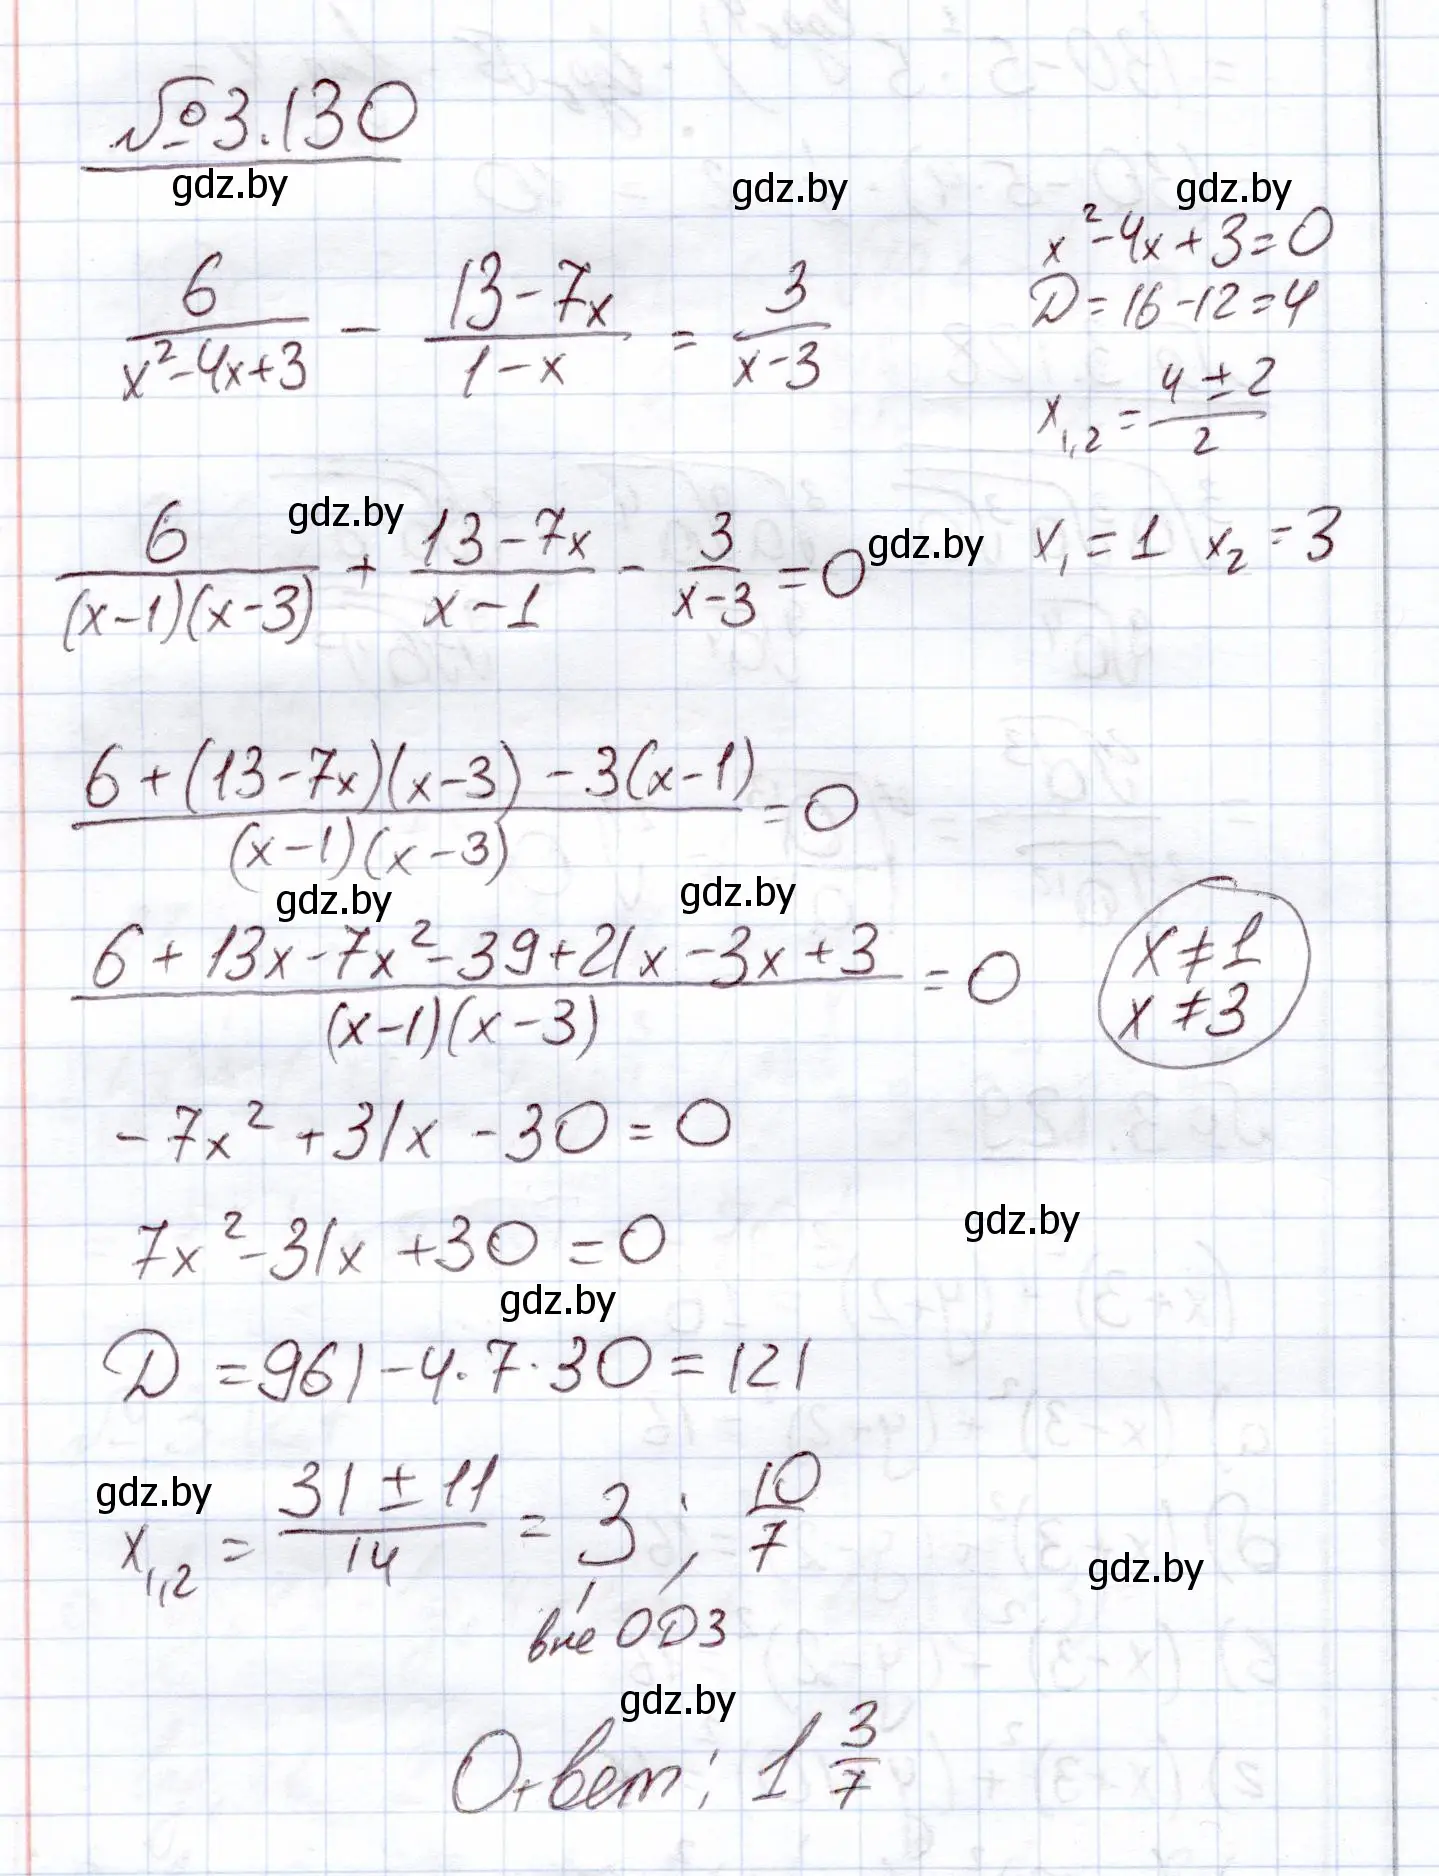 №3.130
gdz.by gdz.by gdz.by
6/(x²-4x+3) - (13-7x)/(1-x) = 3/(x-3)
x²-4x+3=0
D=16-12=4
x₁,₂ = (4±2)/2
x₁=1 x₂=3
gdz.by gdz.by
6/((x-1)(x-3)) + (13-7x)/(x-1) - 3/(x-3) = 0
(6+(13-7x)(x-3)-3(x-1))/((x-1)(x-3)) = 0
gdz.by gdz.by
(6+13x-7x²-39+21x-3x+3)/((x-1)(x-3)) = 0
x≠1
x≠3
-7x²+31x-30=0
7x²-31x+30=0
gdz.by
gdz.by
D=961-4·7·30=121
gdz.by
x₁,₂ = (31±11)/14 = 3; 10/7
gdz.by
вне ОДЗ
gdz.by
Ответ: 1 3/7